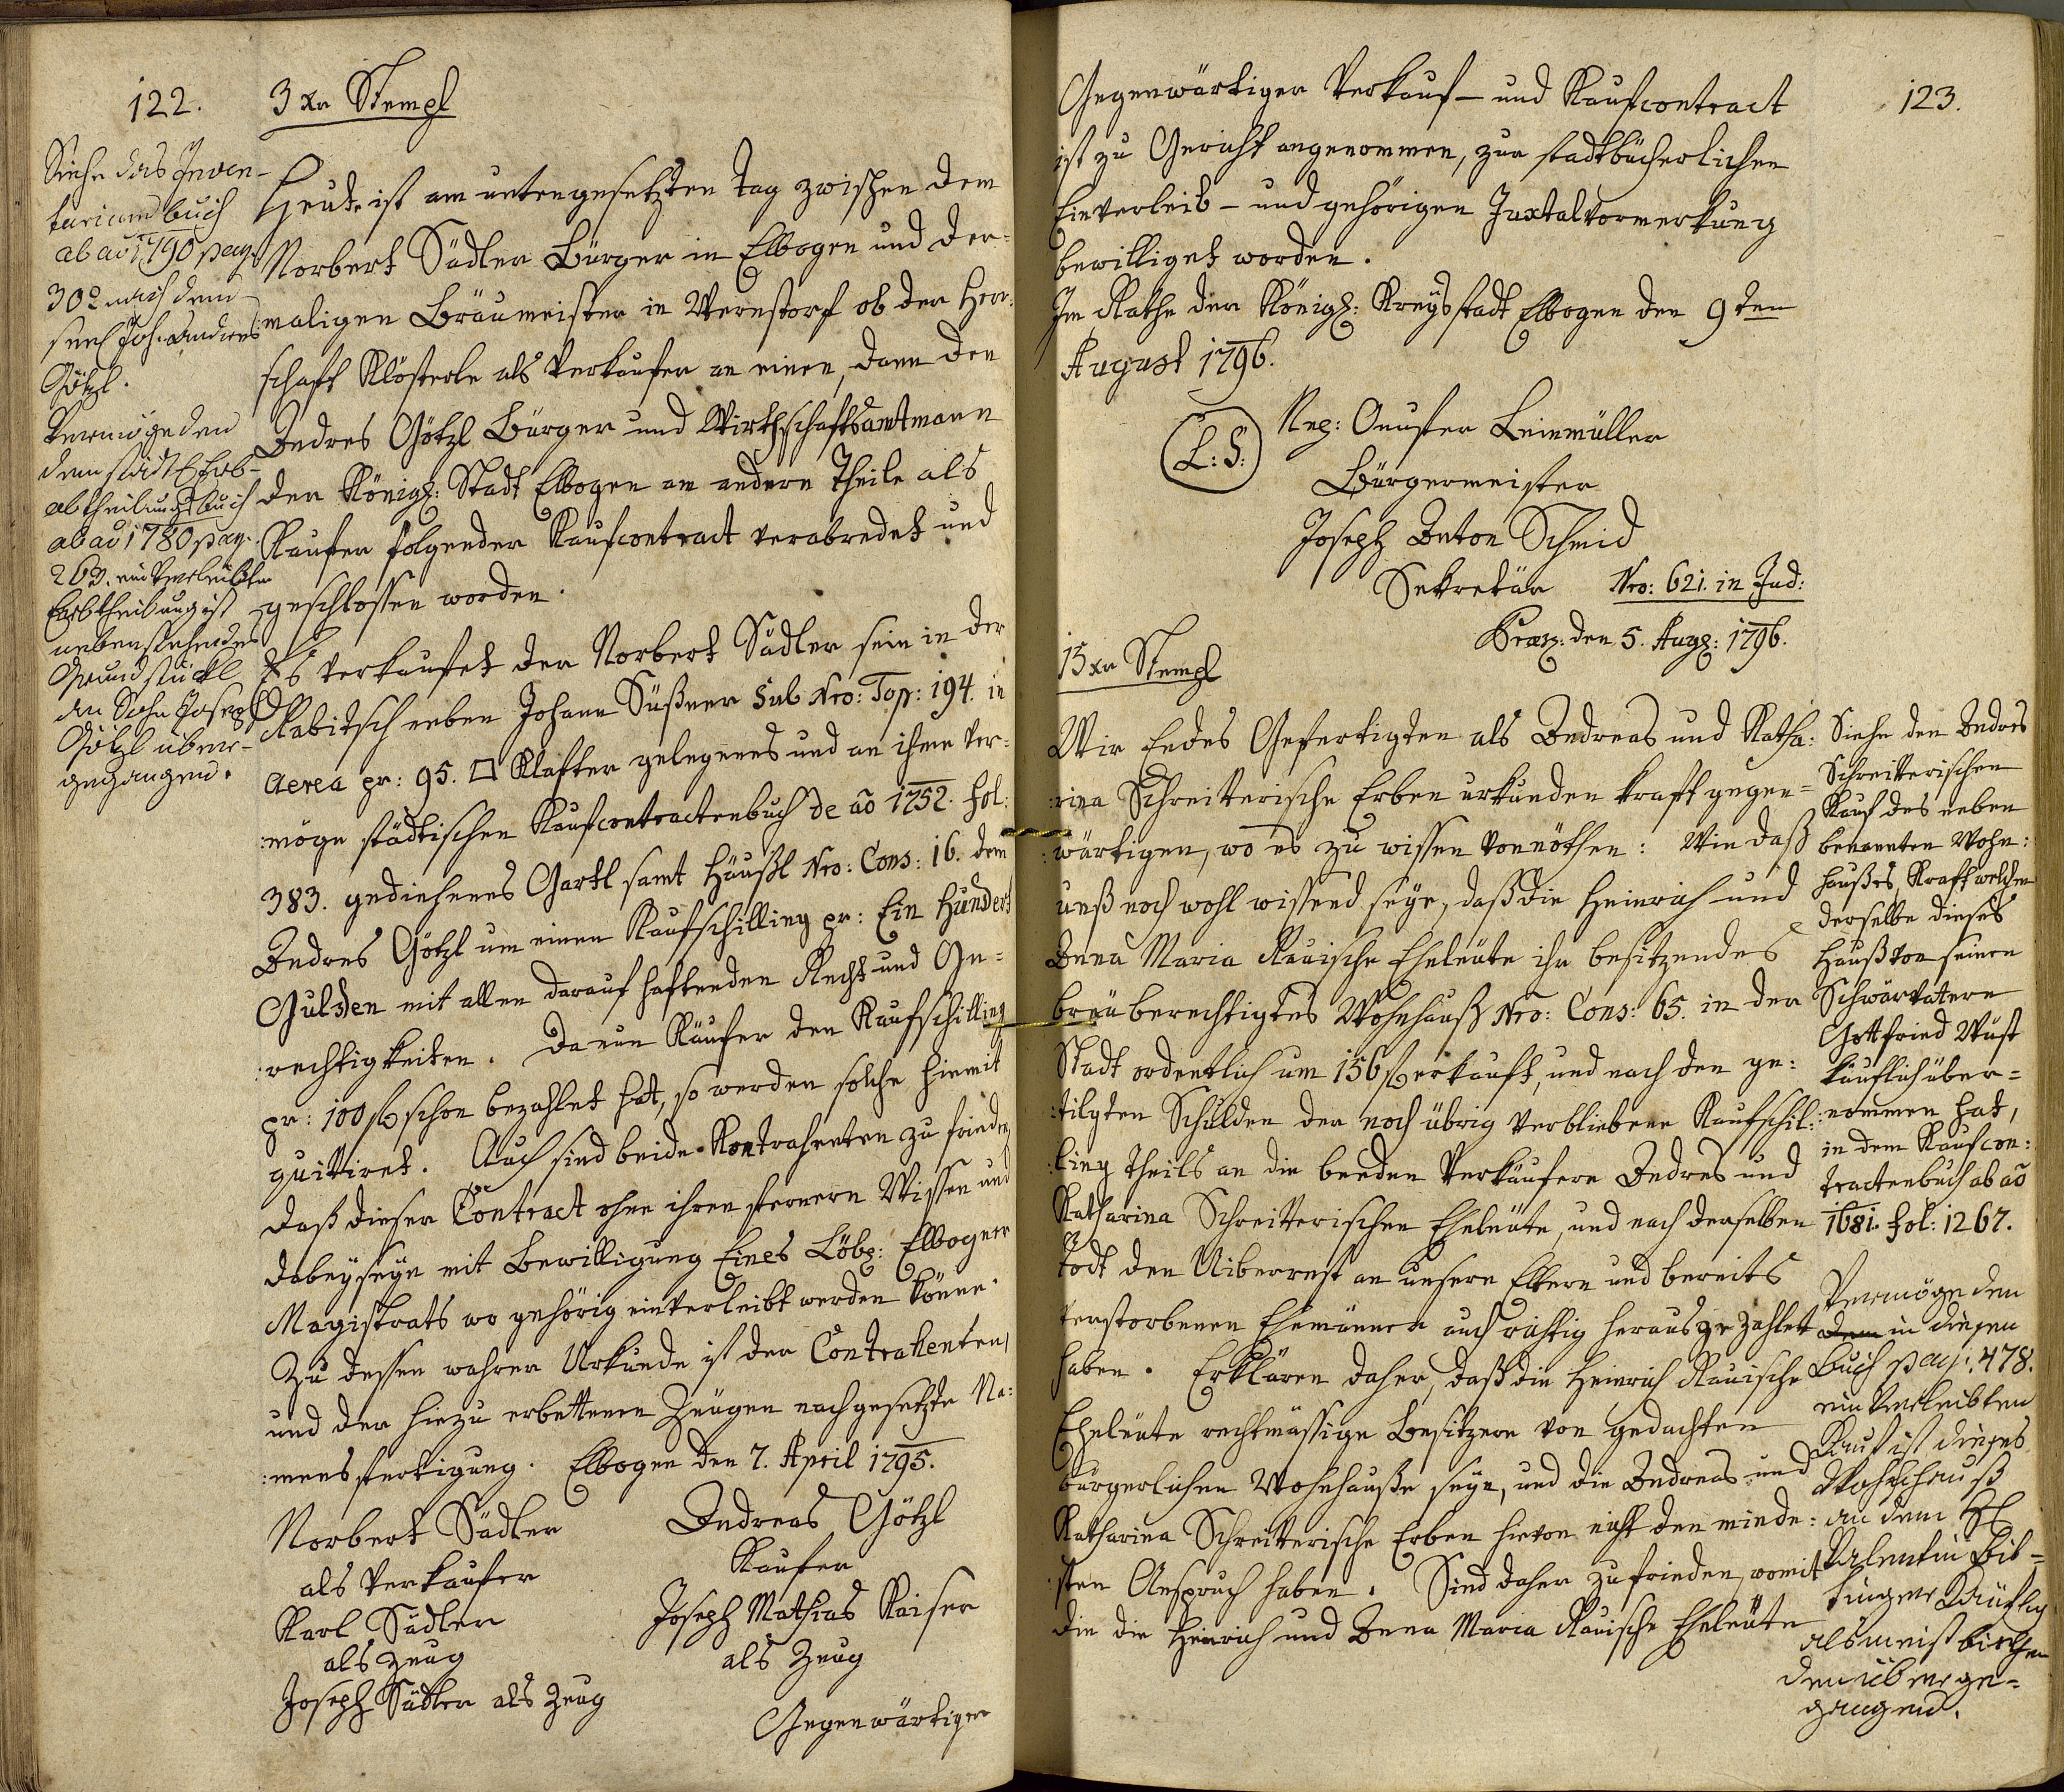 122.
3 xr Stempl
Siehe das Inven-
tariumsbuch
ab aō 1790 pag.
302 nach dem
seel Joh. Andres
Götzl.
Vermöge den
dem städtl Erb-
abtheilungsbuch
ab aō 1780 pag.
263. einverleibten
Erbtheilung ist
nebenstehendes
Grundstückl
an Sohn Joseph
Götzl überge-
gangen.
Heute ist am untengesetzten Tag zwischen dem
Norbert Sädler Bürger in Elbogen und der-
maligen Bräumeister in Wernstorf ob der Herr-
schaft Klösterle als Verkäufer an einen, dann den
Andres Götzl Bürger und Wirthschaftsamtmann
der Königl: Stadt Elbogen am andern Theile als
Kaufer folgender Kaufcontract verabredet und
geschlossen worden.
Es verkaufet der Norbert Sädler sein in der
Rabitsch neben Johann Süßner sub Nro: Top: 194. in
Aerea pr: 95. □ Klafter gelegenes und an ihme ver-
:möge städtischen Kaufcontractenbuch de aō 1752. fol:
383. gediehenes Gartl samt Häußl Nro: Cons: 16. dem
Andres Götzl um einen Kaufschilling pr: Ein Hundert
Gulden mit allen darauf haftenden Recht und Ge-
:rechtigkeiten. Da nun Käufer den Kaufschilling
pr: 100 fl schon bezahlet hat, so werden solche hiemit
quittiret. Auch sind beide Kontrahenten zu frieden,
daß dieser Contract ohne ihren fernern Wissen und
dabeyseyn mit Bewilligung Eines Löbl: Elbogner
Magistrats wo gehörig einverleibt werden könne.
Zu dessen wahrer Urkunde ist der Contrahenten
und der hiezu erbettenen Zeugen nachgesetzte Na-
:mensfertigung. Elbogen den 7. April 1795.
Norbert Sädler
als Verkäufer
Karl Sädler
als Zeug
Joseph Sädler als Zeug
Andreas Götzl
Kaufer
Joseph Mathias Kaiser
als Zeug
Gegenwärtiger
123.
Gegenwärtiger Verkauf- und Kaufcontract
ist zu Gericht angenommen, zur stadtbücherlichen
Einverleib- und gehörigen Juxtalvormerkung
bewilliget worden.
Im Rathe der Königl: Kreysstadt Elbogen den 9ten
August 1796.
L: S:
Leinmüller
Bürgermeister
Joseph Anton Schmid
Sekretär
Nro: 621. in Jud:
Præs: den 5. Aug: 1796.
15 xr Stempl
Wir Endes Gefertigten als Andreas und Katha-
:rina Schreiterische Erben urkunden kraft gegen-
:wärtigen, wo es zu wissen vonnöthen: Wie daß
unß noch wohl wissend seye, daß die Heinrich und
Anna Maria Rauische Eheleute ihr besitzendes
breüberechtigtes Wohnhauß Nro: Cons: 65. in der
Stadt ordentlich um 156 fl erkauft, und nach den ge-
:tilgten Schulden der noch übrig verbliebene Kaufschil-
:ling theils an die beeden Verkäufere Andres und
Katharina Schreitterischen Eheleüte, und nach derselben
Todt den Uiberrest an unsere Eltern und bereits
verstorbenen Ehemänner auch richtig herausgezahlet
haben. Erklären daher, daß die Heinrich Rauische
Eheleüte rechtmässige Besitzere von gedachten
bürgerlichen Wohnhauße seye, und die Andreas und
Katharina Schreitterische Erben hievon nicht den minde-
:sten Anspruch haben. Sind daher zufrieden, womit
die die Heinrich und Anna Maria Rauische Eheleüte
Siehe den Andres
Schreitterischen
Kauf des neben
benannten Wohn-
haußes, Kraft welchen
derselbe dieses
Hauß von seinen
Schwärvatern
Gottfried Wust
käuflich über-
:nommen hat,
in dem Kaufcon-
tractenbuch ab aō
1681. fol: 1267.
Vermöge den
dem in diesen
Buch pag: 478.
einverleibten
Kauf ist dieses
Wohnhauß
an dem H
Valentin
käuflich
als meistbiethen-
den überge-
gangen.